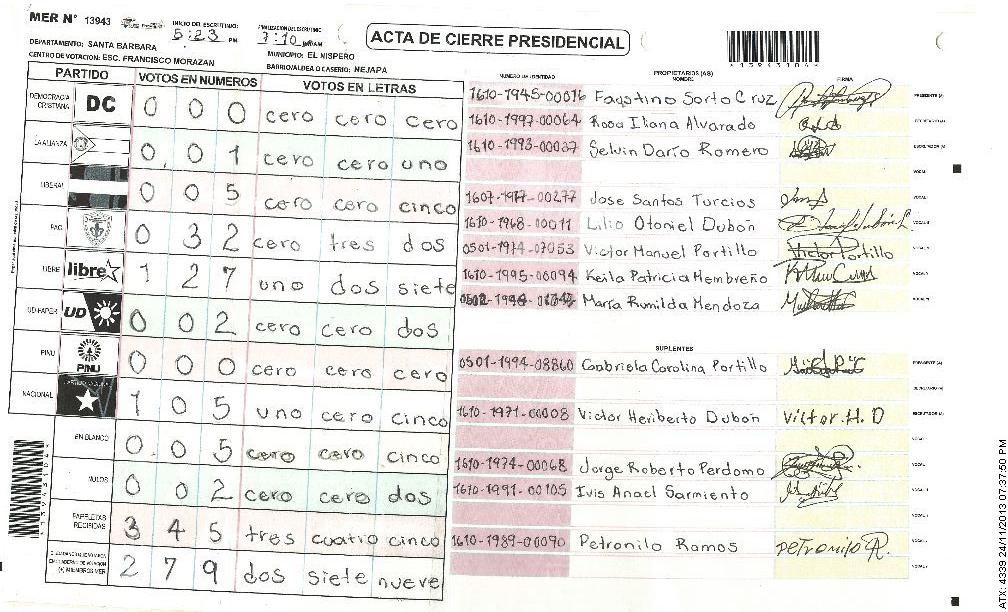 MER N° 13943 INICIO DEL ESCRUTINIO: 5:23 PM 7:10 ACTA DE CIERRE PRESIDENCIAL
DEPARTAMENTO: SANTA BARBARA MUNICIPIO: EL NISPERO
CENTRO DE VOTACION: ESC. FRANCISCO MORAZAN BARRIO/ALDEA O CASERIO: NEJAPA
PARTIDO VOTOS EN NUMEROS VOTOS EN LETRAS
DEMOCRACIA CRISTIANA DC 0 0 0 cero cero cero
LA ALIANZA 0 0 1 cero cero uno
LIBERAL 0 0 5 cero cero cinco
PAC 0 3 2 cero tres dos
LIBRE libre 1 2 7 uno dos siete
UD-FAPER UD 0 0 2 cero cero dos
PINU PINU 0 0 0 cero cero cero
NACIONAL 1 0 5 uno cero cinco
EN BLANCO 0 0 5 cero cero cinco
NULOS 0 0 2 cero cero dos
PAPELETAS RECIBIDAS 3 4 5 tres cuatro cinco
2 7 9 dos siete nueve
NUMERO DE IDENTIDAD PROPIETARIOS (AS) NOMBRE FIRMA
1610-1945-00016 Faustino Sorto Cruz PRESIDENTE (A)
1610-1997-00064 Rosa Iliana Alvarado SECRETARIO (A)
1610-1993-00037 Selvin Darío Romero ESCRUTADOR (A)
VOCAL I
1607-1977-00277 Jose Santos Turcios VOCAL II
1610-1968-00011 Lilio Otoniel Dubón
0501-1974-07053 Victor Manuel Portillo Victor Portillo
1610-1995-00094 Keila Patricia Membreño
María Rumilda Mendoza
SUPLENTES
0501-1994-08860 Gabriela Carolina Portillo PRESIDENTE (A)
SECRETARIO (A)
1610-1971-00008 Victor Heriberto Dubón Victor.H.D ESCRUTADOR (A)
1610-1974-00068 Jorge Roberto Perdomo
1610-1991-00105 Ivis Anael Sarmiento
1610-1989-00090 Petronilo Ramos petronilo R.
ATX: 4339 24/11/2013 07:37:50 PM